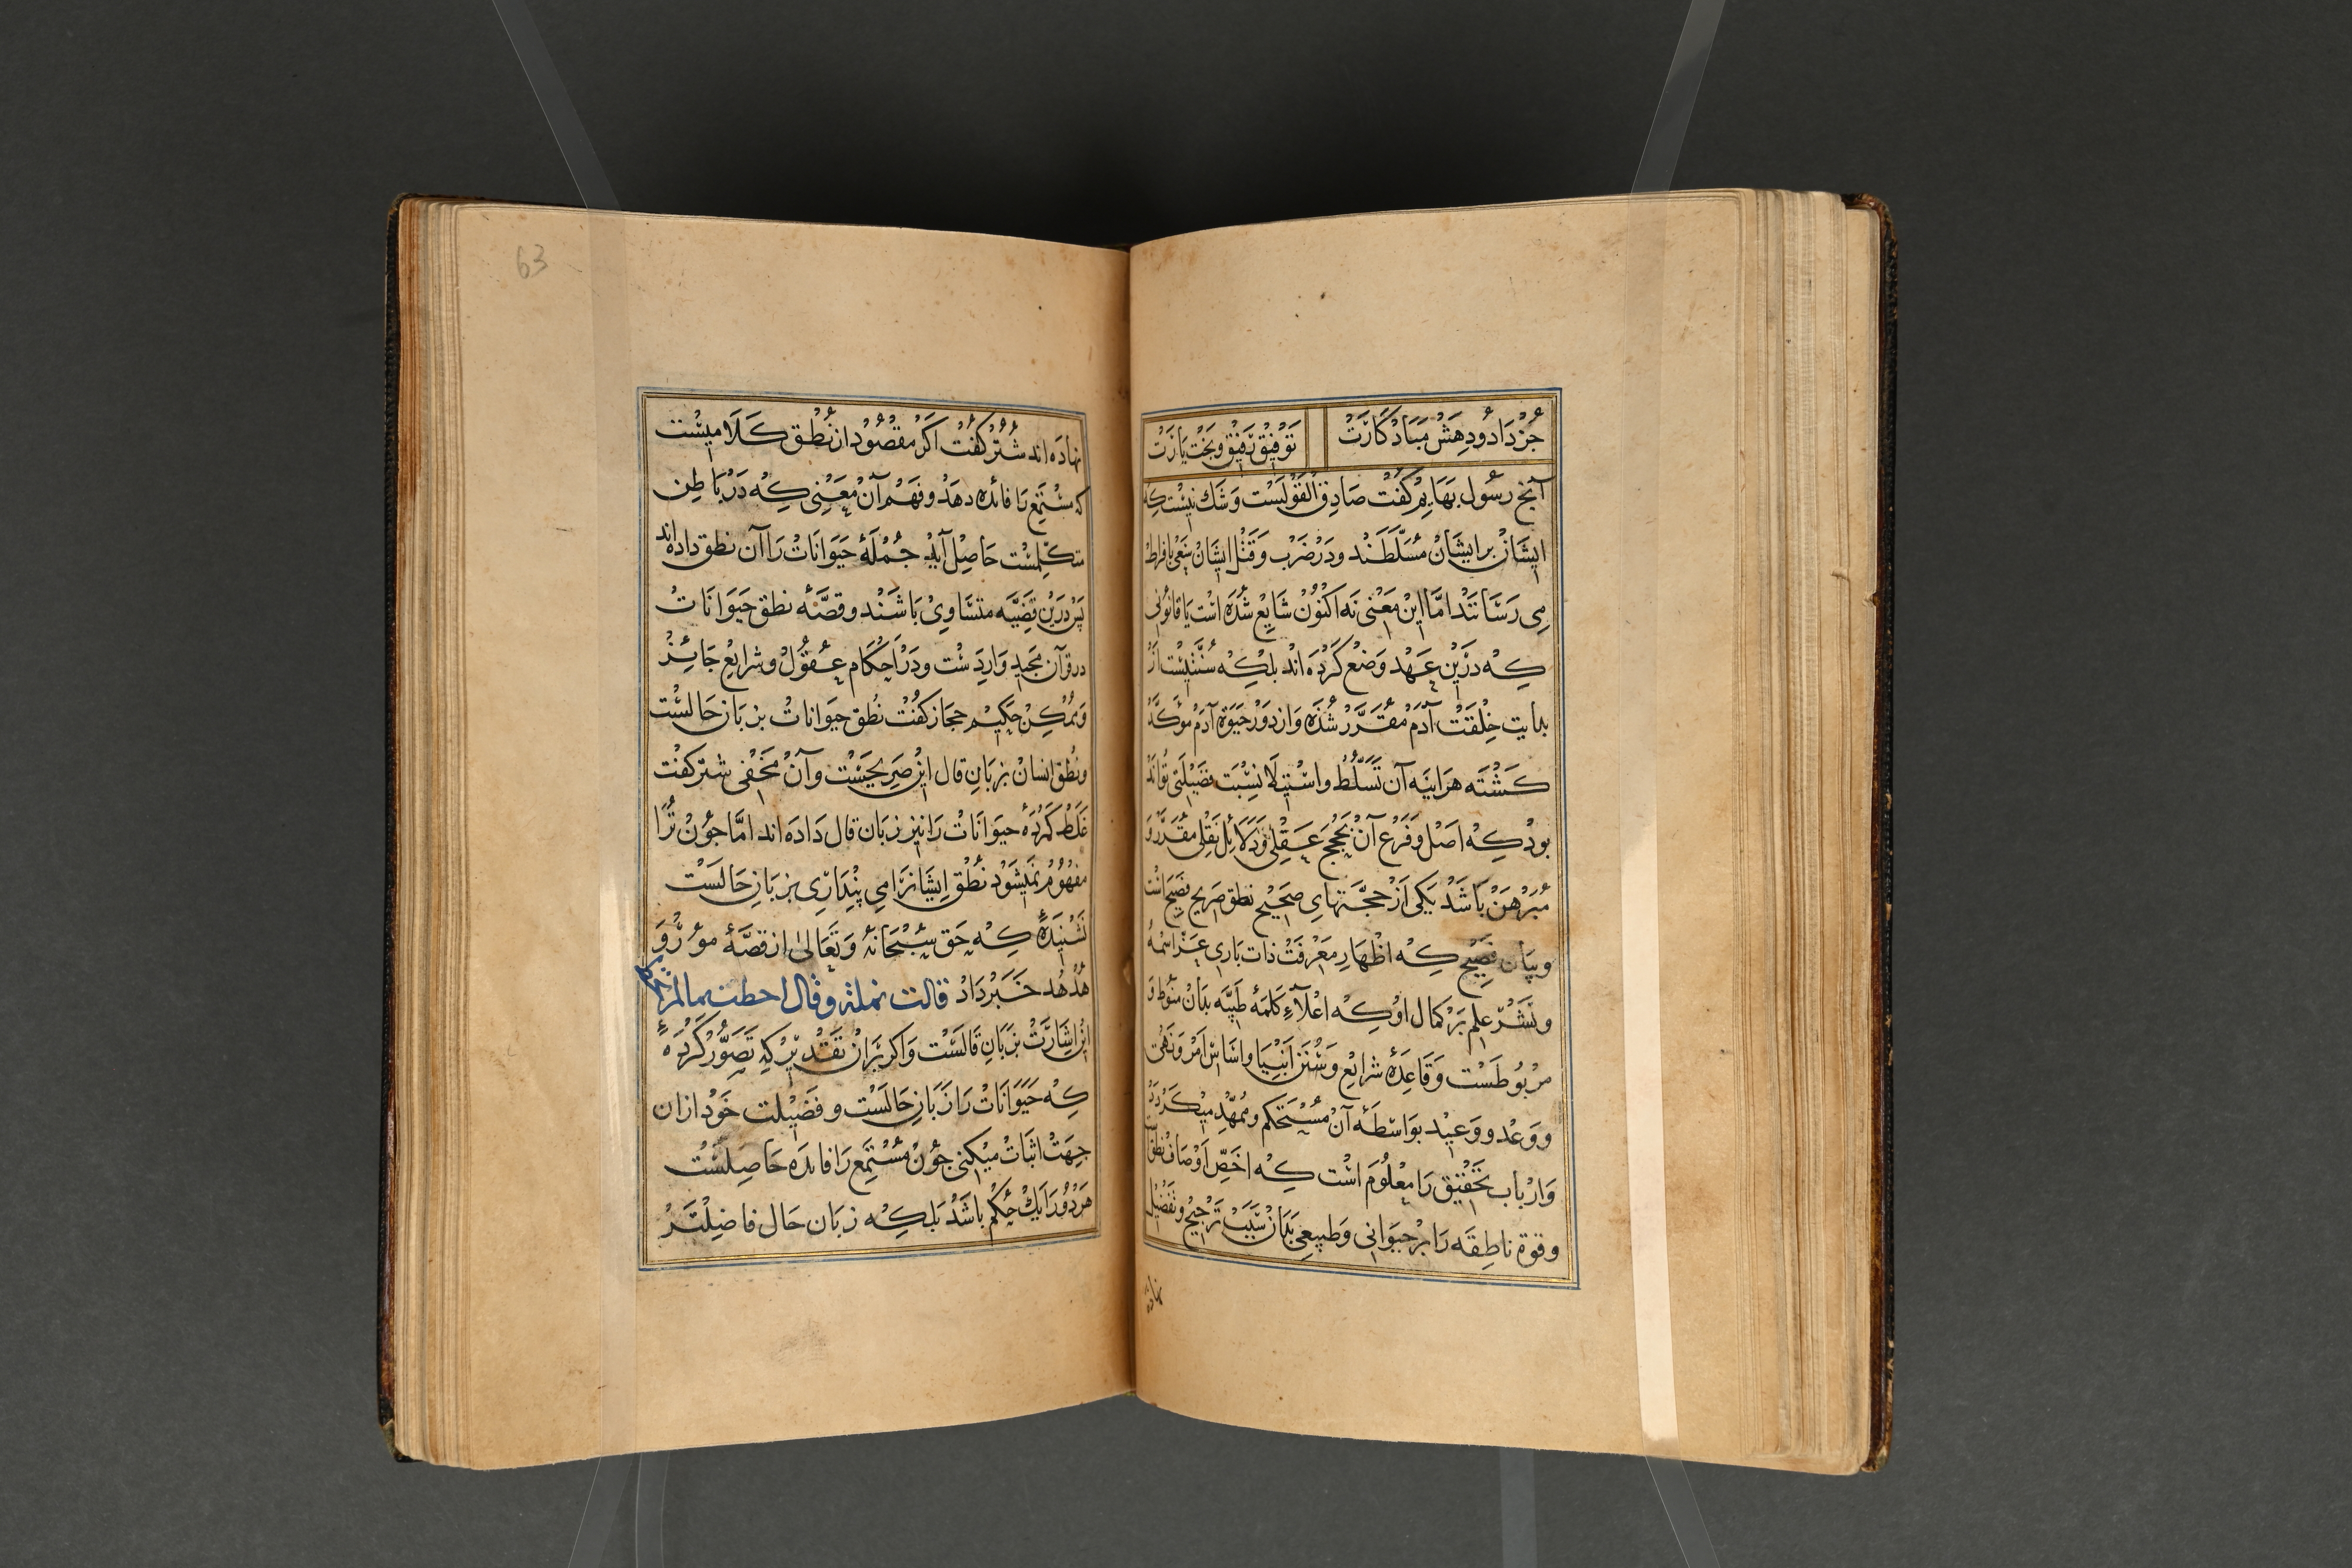 جُز داد و دهش مباد کارت
توفیق رفیق و بخت یارت
آنچ رسول بهایم کفت صادق القولست و شک نیست که
ایشان بر ایشان مسلطند و در ضرب و قتل ایشان سعی بافراط
می رسانند اما این معنی نه اکنون شایع شده است یا قانونی
که درین عهد وضع کرده اند بلکه سنتیست از
بدایت خلقت آدم مقرر شده و از دور حیوة آدم موکد
کشته هراینه آن تسلط و استیلا نسبت فضیلتی تواند
بود که اصل و فرع آن بحجج عقلی و دلائل نقلی مقرر و
مبرهن باشد یکی از حجتهای صحیح نطق صریح فصیح است
و بیان فصیح که اظهار معرفت ذات باری عز اسمه
و نشر علم بر کمال او که اعلاء کلمهٔ طیبه بدان منوط و
مربوطست و قاعدهٔ شرایع و سنن انبیا و اساس امر و نهی
و وعد و وعید بواسطهٔ آن مستحکم و ممهد میکردد
و ارباب تحقیق را معلوم است که اخص اوصاف نطق است
و قوة ناطقه را بر حیوانی و طبیعی بدان سبب ترجیح و تفضیل
نهاده
63
نهاده اند شتر کفت اکر مقصود از نطق کلامیست
که مستمع را فائده دهد و فهم آن معنی که در باطن
متکلمست حاصل آید جملهٔ حیوانات را آن نطق داده اند
پس درین قضیه متساوی باشند و قصهٔ نطق حیوانات
در قرآن مجید واردست و در احکام عقول و شرایع جائز
و ممکن حکیم حجاز کفت نطق حیوانات بزبان حالست
و نطق انسان بزبان قال این صریحیست و آن مخفی شتر کفت
غلط کردهٔ حیوانات را نیز زبان قال داده اند اما جون ترا
مفهوم نمیشود نطق ایشانرا می پنداری بزبان حالست
نشنیدهٔ که حق سبحانه و تعالی از قصهٔ مور و
هدهد خبر داد قالت نملة و قال احطت بما لم تحط
این اشارت بزبان قالست و اکر بران تقدیر که تصور کردهٔ
که حیوانات را زبان حالست و فضیلت خود ازان
جهت اثبات میکنی جون مستمع را فائده حاصلست
هر دو را یک حکم باشد بلکه زبان حال فاضلتر